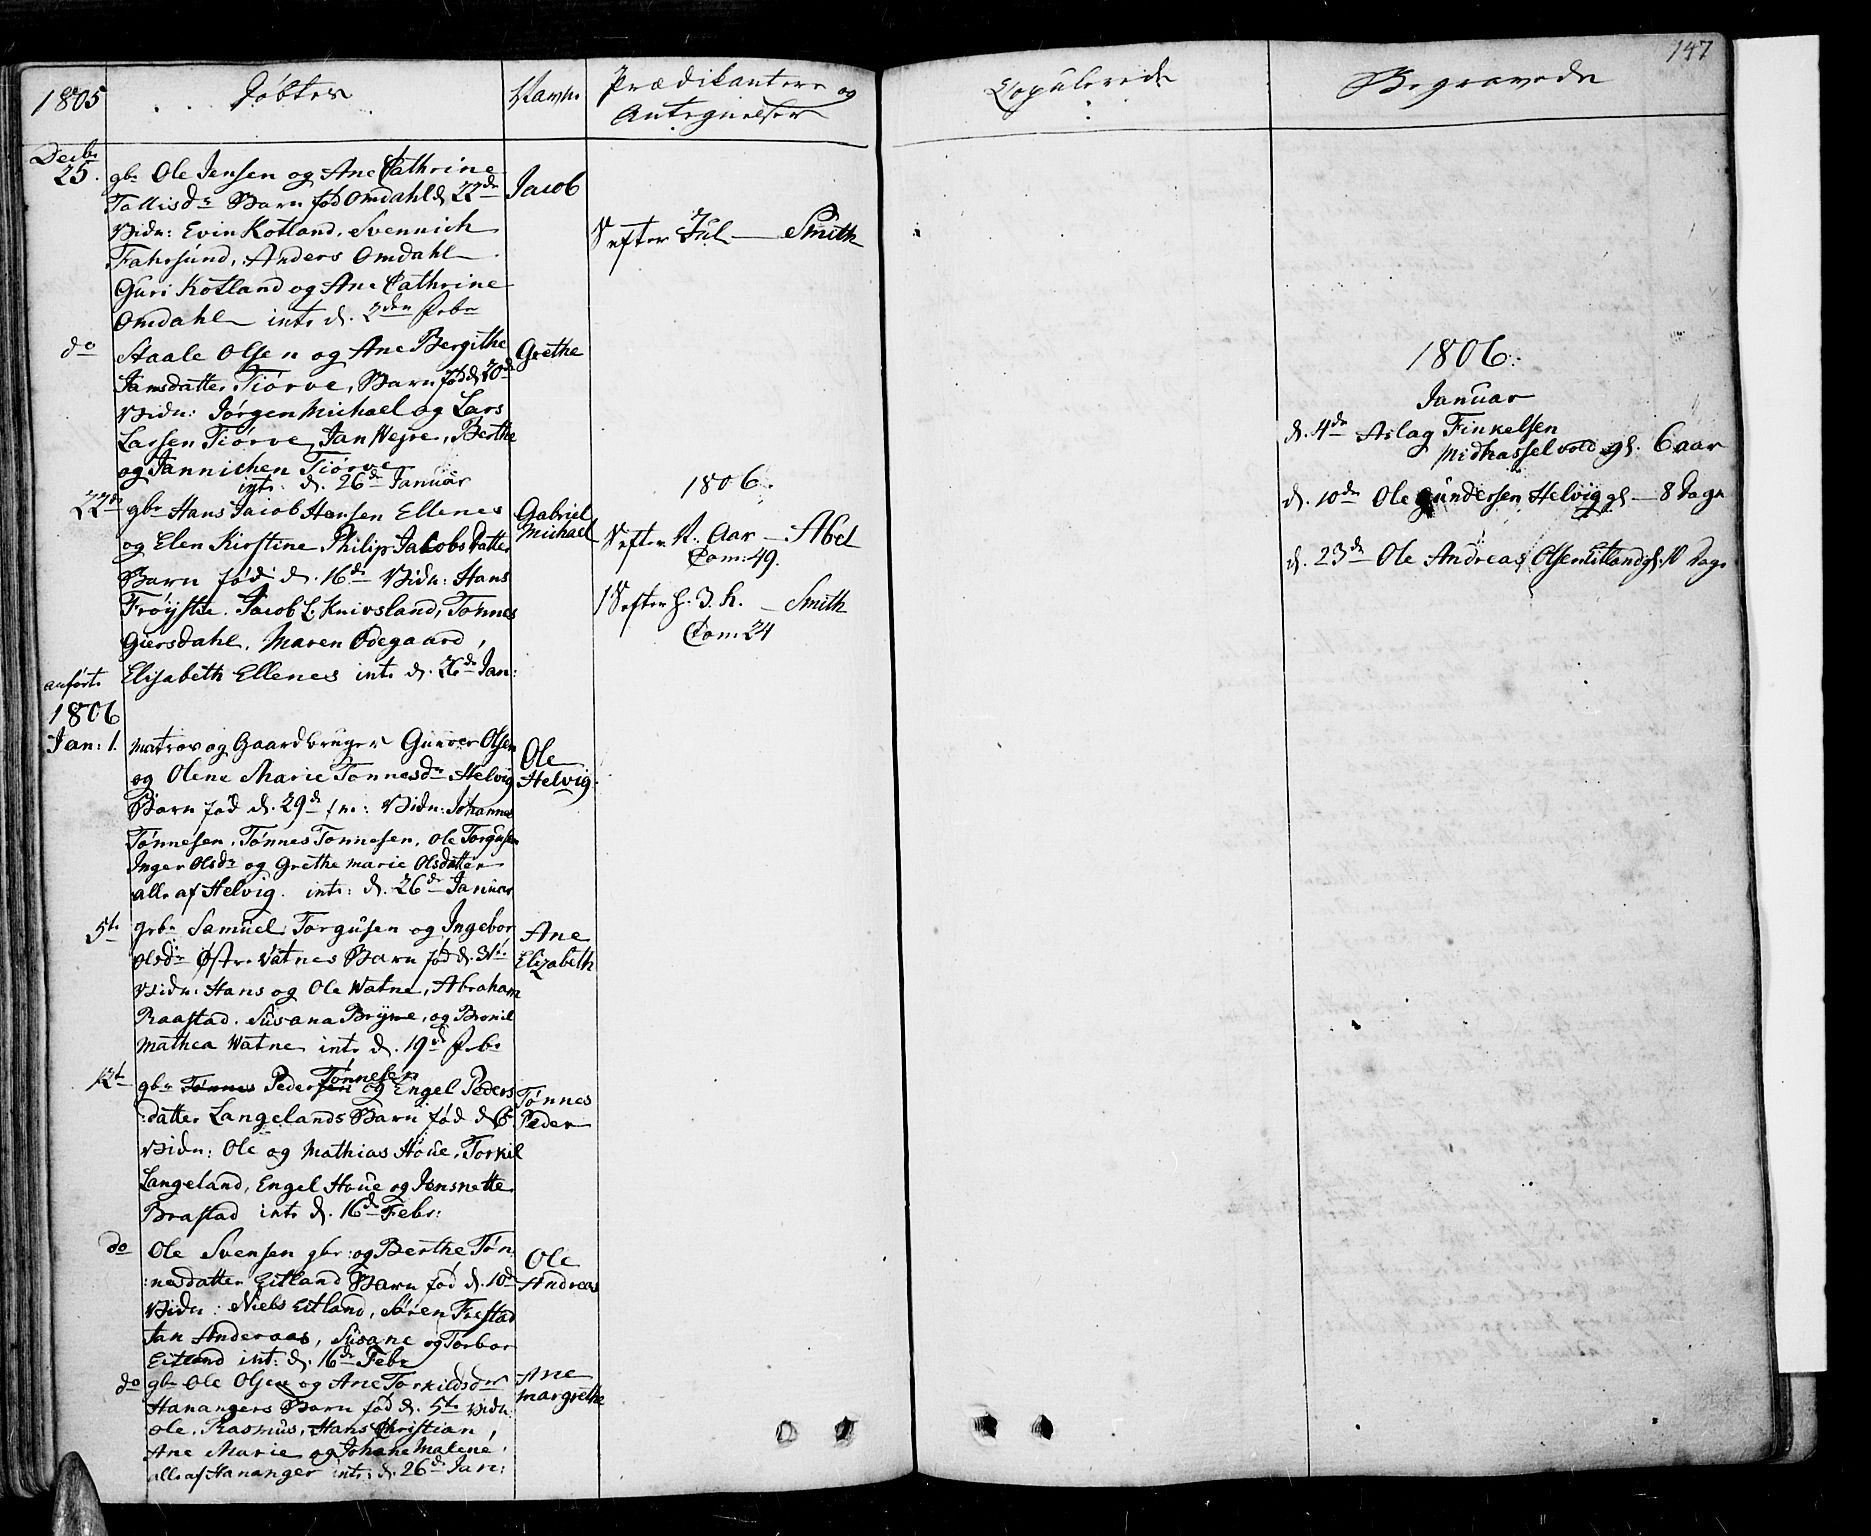 147
1805
Døbte
Navne
Prædikantere og
Antegnelser
Copulerede
Begravede
Decbr
25.
gbr Ole Jensen og Ane Cathrine
Tollisdr Barn fød Omdahl d. 22de
Vidn: Evin Kotland, Svennich
Fahrsund, Anders Omdahl
Guri Kotland og Ane Cathrine
Omdahl intr d. 2den Febr
Jacob
S efter Jul — Smith
do
Staale Olsen og Ane Bergithe
Jamsdatter Tiørve, Barn fød d. 20de
Vidn: Jørgen Michael og Lars
Larsen Tiørve, Jan Vejre, Berthe
og Jannichen Tiørve
intr: d. 26de Januar
Grethe
22de
gbr Hans Jacob Hansen Ellenes
og Elen Kirstine Philip Jacobs Datter
Barn fød d. 16de Vidn: Hans
Frøystie. Jacob L. Knivsland, Tønnes
Giersdahl, Maren Ødegaard,
Elisabeth Ellenes intr d. 26de Jan:
Gabriel
Michael
1806.
S efter N. Aar — Abel
Com: 49.
1 S efter h. 3. K. — Smith
Com: 24
anført
1806
Jan: 1.
Matros og Gaardbruger Gunder Olsen
og Olene Marie Tønnesdr Helvig
Barn fød d. 29de f. m: Vidn: Johannes
Tønnesen, Tønnes Tønnesen, Ole Torgusen
Inger Olsdr og Grethe Marie Olsdatter
alle af Helvig. intr: d. 26de Januar
Ole
Helvig.
5te
gbr Samuel Torgusen og Ingebor
Olsdr Østre Vatnes Barn fød d. 3te
Vidn: Hans og Ole Watne, Abraham
Raastad. Susana Bryne, og Bronil
Mathea Watne intr d. 19de Febr
Ane
Elizabeth
12te
Tønnesen
gbr Tønnes Pedersen og Engel Peders
:datter Langelands Barn fød d. 6te
Vidn: Ole og Mathias Houe, Torkil
Langeland, Engel Houe og Jonsnette
Brastad intr d. 16de Febr:
Tønnes
Peder
do
Ole Svensen gbr: og Berthe Tøn:
:nesdatter Eitland Barn fød d. 10de
Vidn: Niels Eitland, Søren Frestad
Jan Anderaas, Susane og Torbor
Eitland int: d. 16de Febr
Ole
Andreas
do
gbr Ole Olsen og Ane Torkildsdr
Hanangers Barn fød d. 5te Vidn:
Ole, Rasmus, Hans Christian,
Ane Marie og Johane Malene,
alle af Hananger intr: d. 26de Jan:
Ane
Margrethe
1806:
Januar
d. 4de Aslag Finkelsen
Midhasselvold gl. 6 aar
d. 10de Ole Gundersen Helvig gl — 8 Dage
d. 23de Ole Andreas Olsen Eitland gl. 10 Dage